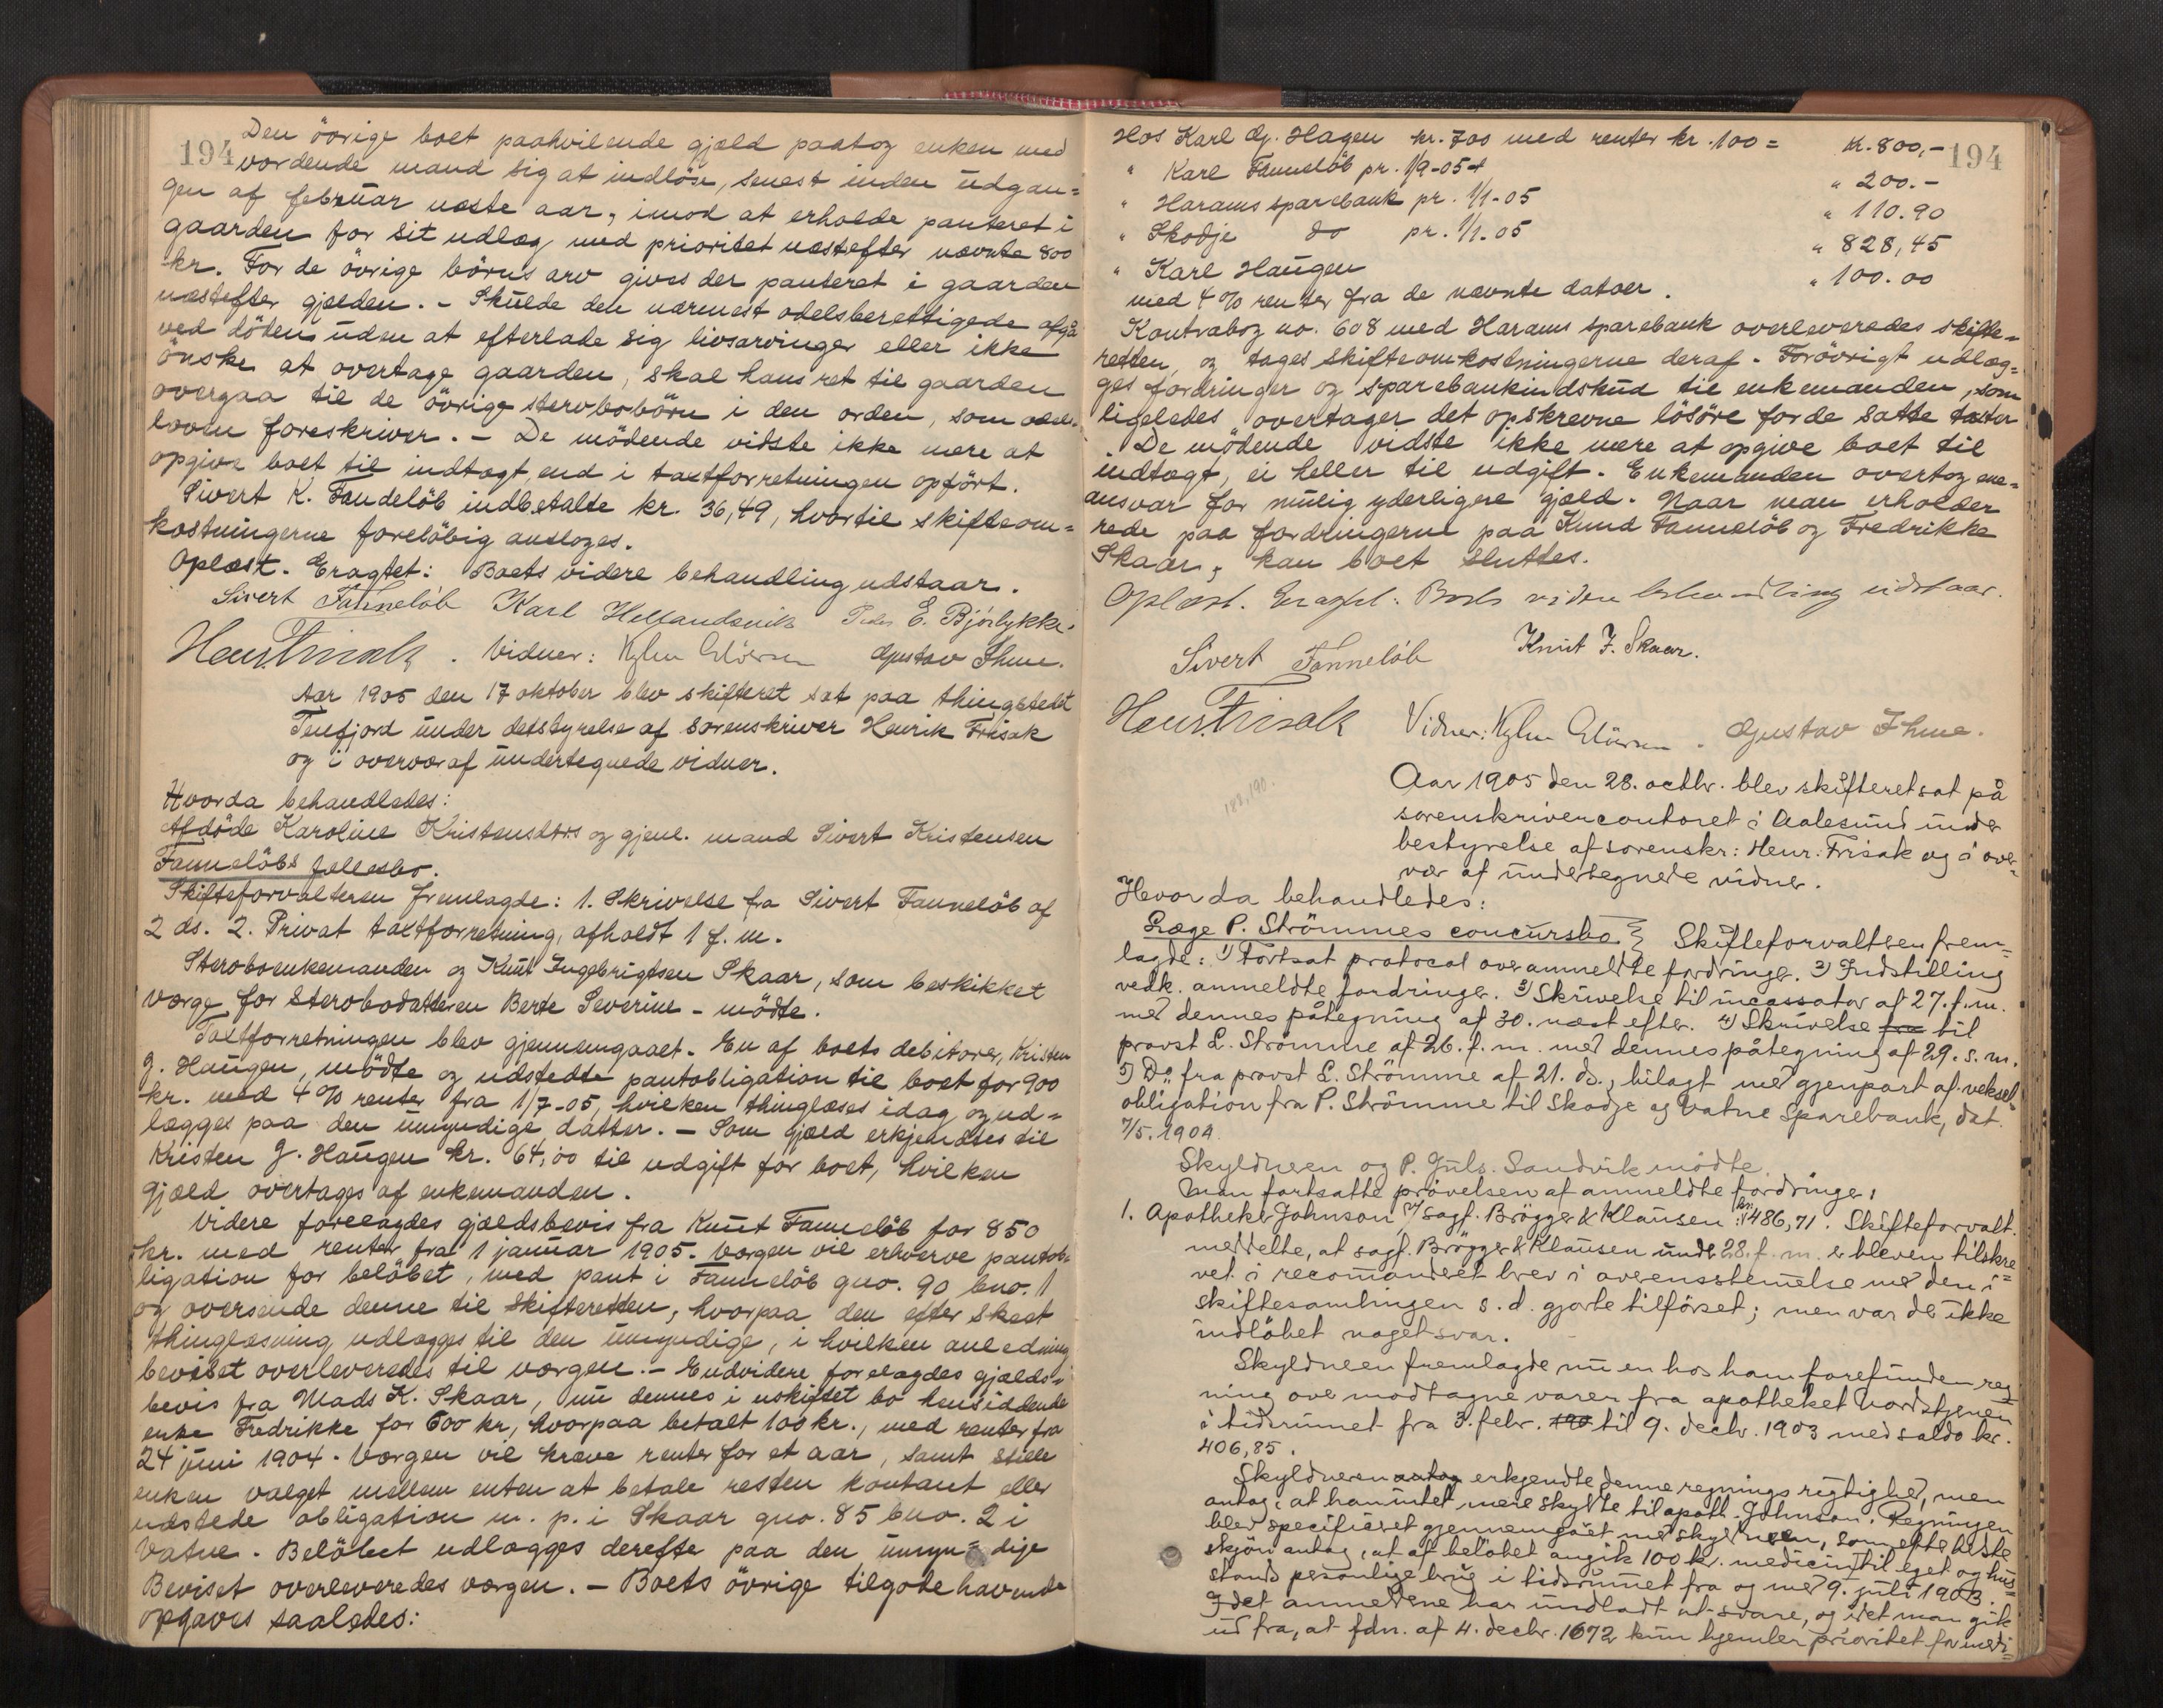 194
Den övrige boet paahvilende gjæld paatog enken med
vordende mand sig at indlöse, senest inden udgan=
gen af februar næste aar, imod at erholde panteret i
gaarden for sit udlæg med prioritet næstefter nævnte 800
kr. For de övrige börns arv gives der panteret i gaarden
næstefter gjælden. - Skulde den nærmest odelsberettigede afgå
ved döden uden at efterlade sig livsarvinger eller ikke
önske at overtage gaarden, skal hans ret til gaarden
overgaa til de övrige stervbobörn i den orden, som odels=
loven foreskriver. - De mödende vidste ikke mere at
opgive boet til indtægt, end i taxtforretningen opfört.
Sivert K. Fandelöb indbetalte kr. 36,49, hvortil skifteom=
kostningerne forelöbig ansloges.
Oplæst. Eragtet: Boets videre behandling udstaar.
Sivert Fanneløb Karl Hellandsvik Peder E. Bjørlykke.
Henr Frisak. Vidner: Gustav Thue.
Aar 1905 den 17 oktober blev skifteret sat paa thingstedet
Tenfjord under detsstyrelse af sorenskriver Henrik Frisak
og i overvær af undertegnede vidner.
Hvorda behandledes:
Afdöde Karoline Kristensdtrs og gjenl. mand Sivert Kristensen
Fannelöbs fællesbo.
Skifteforvalteren fremlagde: 1. Skrivelse fra Sivert Fannelöb af
2 ds. 2. Privat taxtforretning, afholdt 1 f. m.
Stervboenkemanden og Knut Ingebrigtsen Skaar, som beskikket
værge for stervbodatteren Berte Severine - mödte.
Taxtforretningen blev gjennemgaaet. En af boets debitorer, Kristen
J. Haugen, mödte og udstedte pantobligation til boet for 900
kr. med 4 % renter fra 1/7-05, hvilken thinglæses idag og ud=
lægges paa den umyndige datter. - Som gjæld erkjendtes til
Kristen J. Haugen kr. 64,00 til udgift for boet, hvilken
gjæld overtages af enkemanden.
Videre forelagdes gjældsbevis fra Knut Fannelöb for 850
kr. med renter fra 1 januar 1905. Værgen vil erhverve pantob=
ligation for belöbet, med pant i Fannelöb gno. 90 bno. 1
og oversende denne til skifteretten, hvorpaa den efter skeet
thinglæsning udlægges til den umyndige, i hvilken anledning
beviset overleveredes til værgen. - Endvidere forelagdes gjælds=
bevis fra Mads K. Skaar, nu dennes i uskiftet bo hensiddende
enke Fredrikke for 600 kr, hvorpaa betalt 100 kr., med renter fra
24 juni 1904. Værgen vil kræve renter for et aar, samt stille
enken valget mellem enten at betale resten kontant eller
udstede obligation m. p. i Skaar gno. 85 bno. 2 i
Vatne. Belöbet udlægges derefter paa den umyn=dige
Beviset overleveredes værgen. - Boets övrige tilgodehavende
opgaves saaledes:
194
Hos Karl G. Hagen kr. 700 med renter kr. 100 = kr. 800,-
" Karl Fannelöb pr. 1/9-05 " 200.-
" Harams sparebank pr. 1/1-05 " 110.90
" Skodje do pr. 1/1.05 " 828,45
" Karl Haugen " 100.00
med 4 % renter fra de nævnte datoer.
Kontrabog no. 608 med Harams sparebank overleveredes skifte=
retten, og tages skifteomkostningerne deraf. Forövrigt udlæg=
ges fordringer og sparebankindskud til enkemanden, som
ligeledes overtager det opskrevne lösöre for de satte taxter
De mödende vidste ikke mere at opgive boet til
indtægt, ei heller til udgift. Enkemanden overtog ene=
ansvar for mulig yderligere gjæld. Naar man erholder
rede paa fordringerne paa Knud Fannelöb og Fredrikke
Skaar, kan boet sluttes.
Oplæst. Eragtet: Boets videre behandling udstaar.
Sivert Fanneløb Knut J. Skaar.
Henr Frisak Vidner: Gustav Thue.
188, 190.
Aar 1905 den 28. octbr. blev skifteret sat på
sorenskrivercontoret i Aalesund under
bestyrelse af sorenskr: Henr: Frisak og i over=
vær af undertegnede vidner.
Hvor da behandledes:
Læge P. Strömmes concursbo. Skifteforvalteren frem=
lagde: 1) Fortsat protocol over anmeldte fordringer. 2) Indstilling
vedk. anmeldte fordringer. 3) Skrivelse til incassator af 27. f. m.
med dennes påtegning af 30. næst efter. 4) Skrivelse fra til
provst L. Strömme af 26. f. m. med dennes påtegning af 29. s. m.
5) Do fra provst L. Strömme af 21. ds., bilagt med gjenpart af veksel=
obligation fra P. Strömme til Skodje og Vatne Sparebank, dat.
7/5.1904.
Skyldneren og P. Juls. Sandvik mödte.
Man fortsatte prövelsen af anmeldte fordringer.
1. Apotheker Johnson v/ sagf. Brögger & Klausen kr: 486,71. Skifteforvalt.
meddelte, at sagf. Brögger & Klausen under 28. f. m. er bleven tilskre=
vet i recomanderet brev i overensstemmelse med den i
skiftesamlingen s. d. gjorte tilförsel; men var der ikke
indlöbet noget svar.
Skyldneren fremlagde nu en hos ham forefunden reg=
ning over modtagne varer fra apotheket Nordstjernen
i tidsrummet fra 3. febr. 190 til 9. decbr. 1903 med saldo kr.
406,85.
Skyldneren antog erkjendte denne regnings rigtighed, men
antog, at han intet mere skyldte til apoth. Johnson. Regningen
blev specificeret gjennemgået med skyldneren, som efter bedste
skjön antog, at af belöbet angik 100 kr. medicin til eget og hus=
stands personlige brug i tidsrummet fra og med 9. juli 1903.
Idet anmelderne har undladt at svare, og idet man gik
ud fra, at fdn. af 4. decbr. 1672 kun hjemler prioritet for medi=